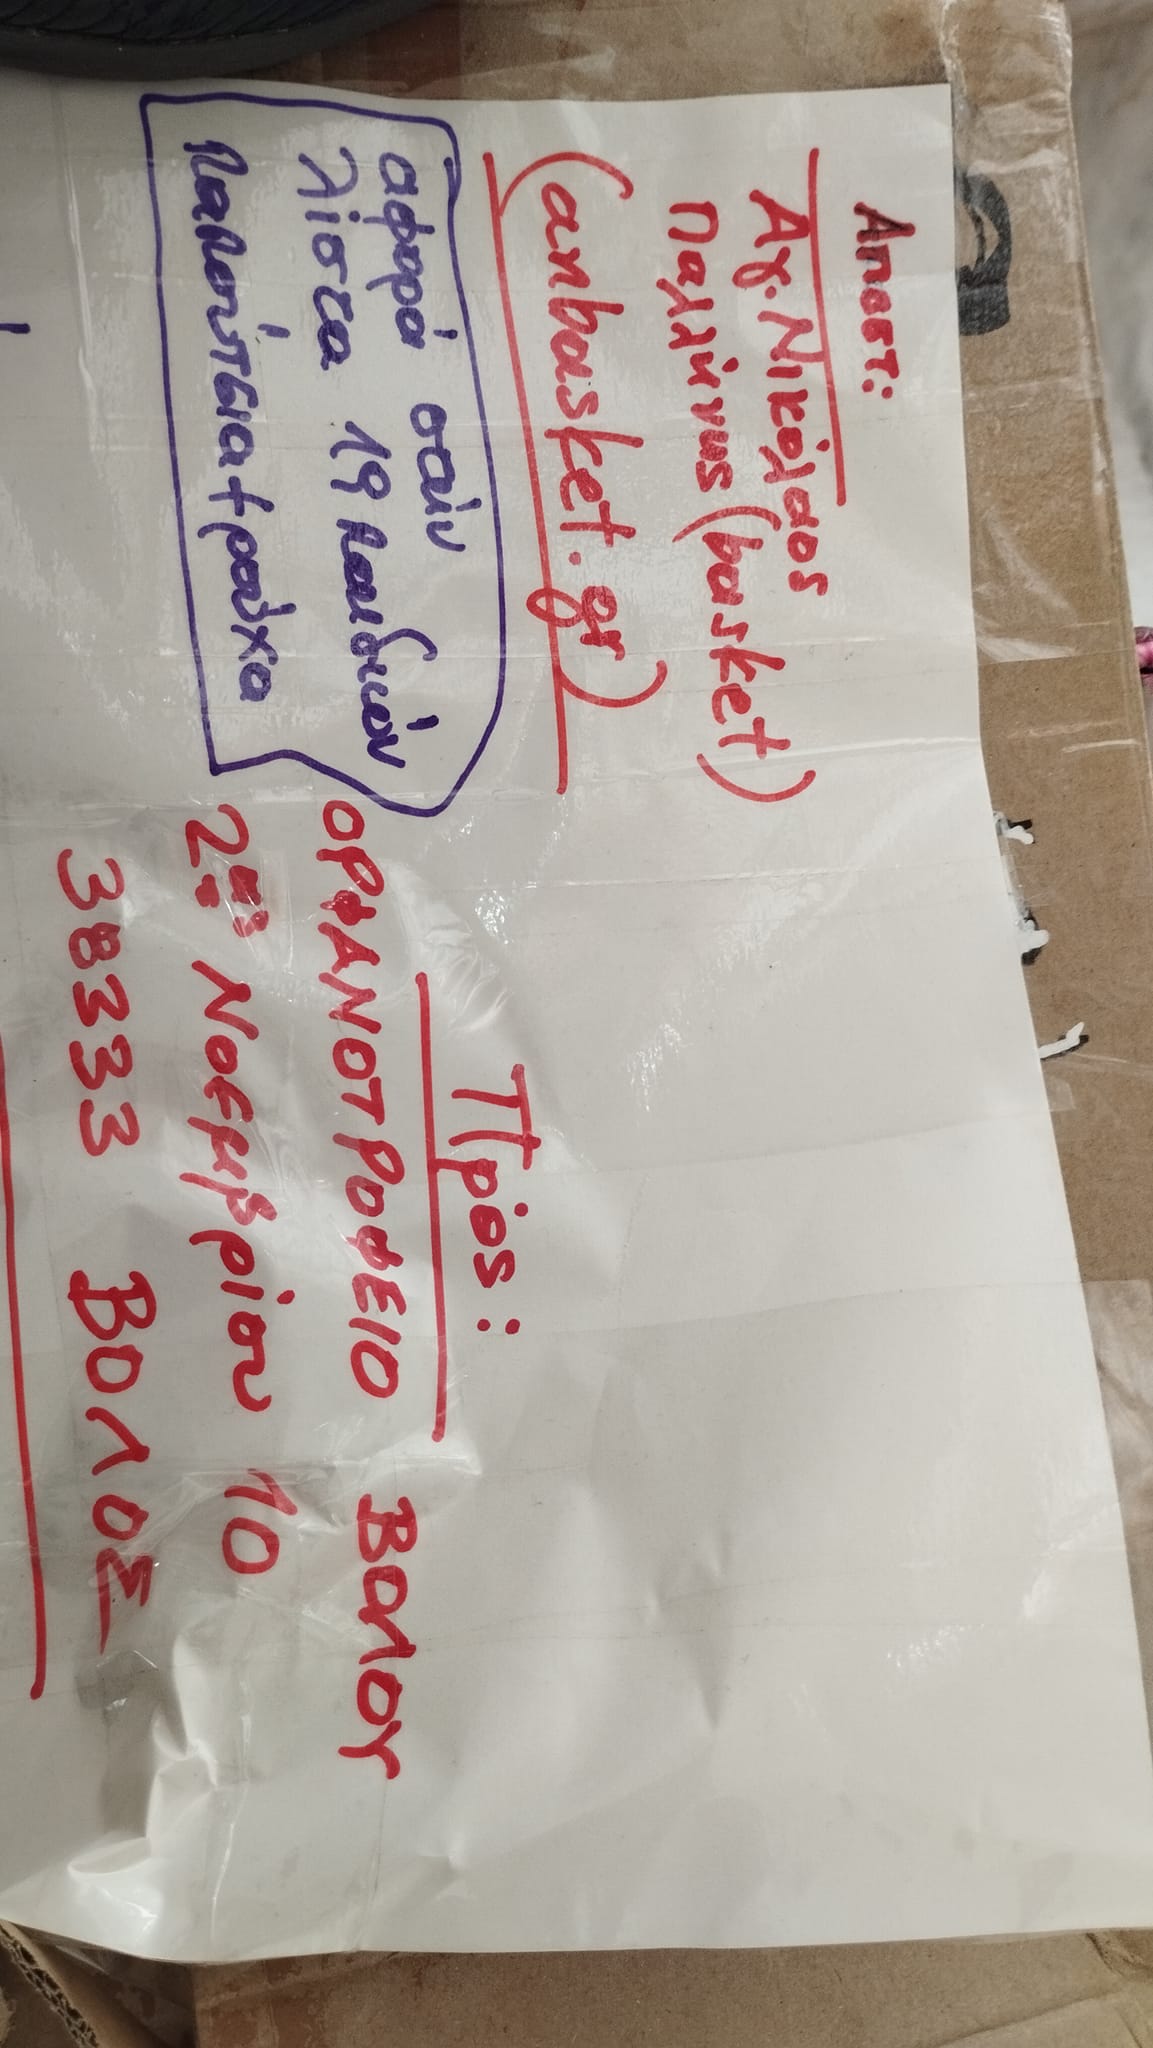 Αποστ:
Αγ. Νικόλαος
Παλλήνης (basket)
(anbasket.gr)
αφορά σαίν
λίστα 19 παιδικών
παπούτσια + ρούχα
Πρός:
ΟΡΦΑΝΟΤΡΟΦΕΙΟ ΒΟΛΟΥ
2ας Νοεμβρίου 10
38333 ΒΟΛΟΣ